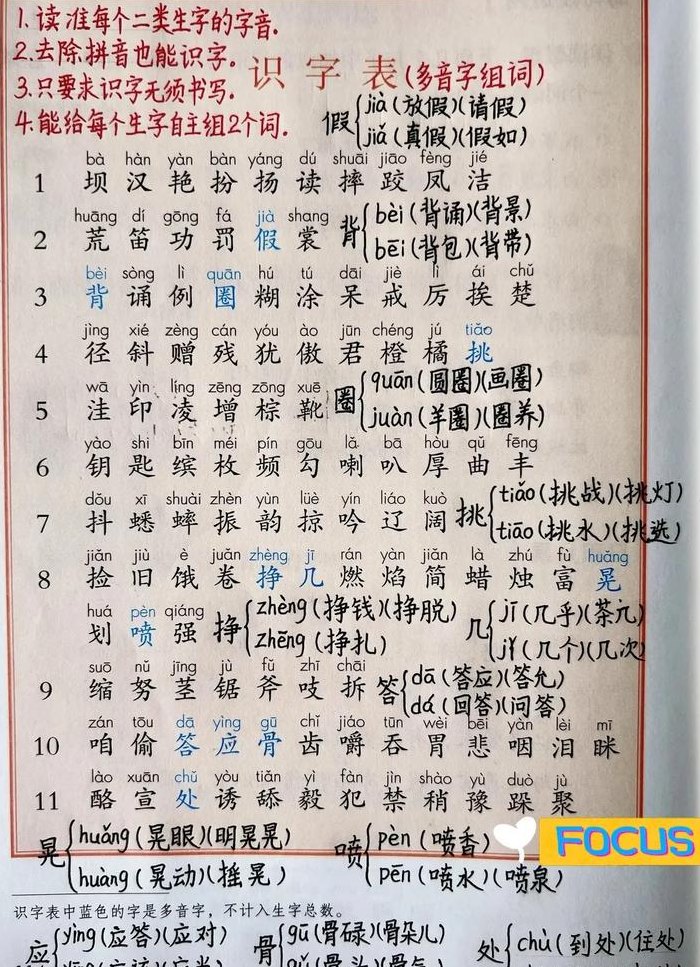 1.读准每个二类生字的字音.
2.去除拼音也能识字.
3.只要求识字无须书写.
4.能给每个生字自主组2个词.
识字表(多音字组词)
假 jià (放假)(请假)
jiǎ (真假)(假如)
bà hàn yàn bàn yáng dú shuāi jiāo fèng jié
1 坝 汉 艳 扮 扬 读 摔 跤 凤 洁
huāng dí gōng fá jià shang
2 荒 笛 功 罚 假 裳
背 bèi (背诵)(背景)
bēi (背包)(背带)
bèi sòng lì quān hú tú dāi jiè lì ái chǔ
3 背 诵 例 圈 糊 涂 呆 戒 厉 挨 楚
jìng xié zèng cán yóu ào jūn chéng jú tiǎo
4 径 斜 赠 残 犹 傲 君 橙 橘 挑
wā yìn líng zēng zōng xuē
5 洼 印 凌 增 棕 靴
圈 quān (圆圈)(画圈)
juàn (羊圈)(圈养)
yào shi bīn méi pín gōu lǎ bā hòu qǔ fēng
6 钥 匙 缤 枚 频 勾 喇 叭 厚 曲 丰
dǒu xī shuài zhèn yùn lüè yín liáo kuò
7 抖 蟋 蟀 振 韵 掠 吟 辽 阔
挑 tiǎo (挑战)(挑灯)
tiāo (挑水)(挑选)
jiǎn jiù è juǎn zhèng jī rán yàn jiǎn là zhú fù huǎng
8 捡 旧 饿 卷 挣 几 燃 焰 简 蜡 烛 富 晃
huá pèn qiáng
划 喷 强
挣 zhèng (挣钱)(挣脱)
zhēng (挣扎)
几 jī (几乎)(茶几)
jǐ (几个)(几次)
suō nǔ jīng jù fǔ zhī chāi
9 缩 努 茎 锯 斧 吱 拆
答 dā (答应)(答允)
dá (回答)(问答)
zán tōu dā yìng gū chǐ jiáo tūn wèi bēi yàn lèi mī
10 咱 偷 答 应 骨 齿 嚼 吞 胃 悲 咽 泪 眯
lào xuān chǔ yòu tiǎn yì fàn jìn shào yù duò jù
11 酪 宣 处 诱 舔 毅 犯 禁 稍 豫 跺 聚
晃 huǎng (晃眼)(明晃晃)
huàng (晃动)(摇晃)
喷 pèn (喷香)
pēn (喷水)(喷泉)
FOCUS
识字表中蓝色的字是多音字，不计入生字总数。
应 yìng (应答)(应对)
骨 gū (骨碌)(骨朵儿)
处 chù (到处)(住处)